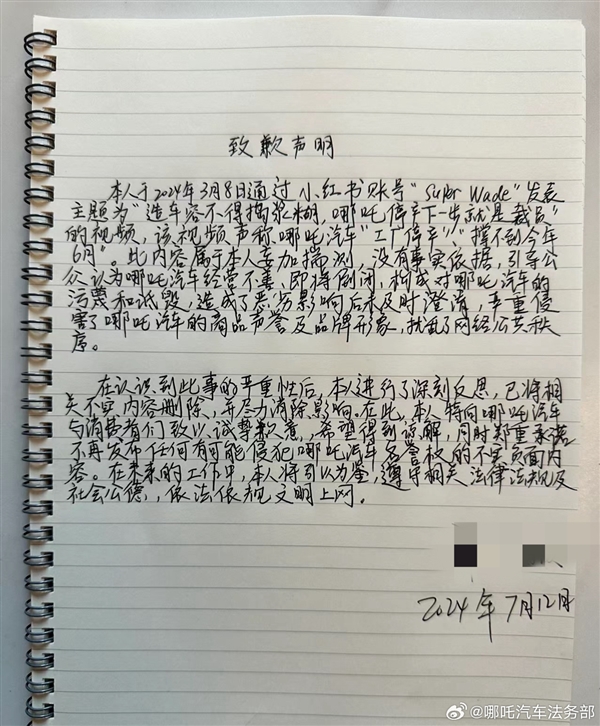 致歉声明
本人于2024年3月8日通过小红书账号"Super Wade"发表
主题为"造车容不得捣浆糊,哪吒停产下一步就是裁员"
的视频,该视频声称哪吒汽车"工厂停产","撑不到今年
6月"。此内容属于本人妄加揣测,没有事实依据,引导公
众认为哪吒汽车经营不善、即将倒闭,构成对哪吒汽车的
污蔑和诋毁,造成了恶劣影响后未及时澄清,严重侵
害了哪吒汽车的商品声誉及品牌形象,扰乱了网络公共秩
序。
在认识到此事的严重性后,本人进行了深刻反思,已将相
关不实内容删除,并尽力消除影响。在此,本人特向哪吒汽车
与消费者们致以诚挚歉意,希望得到谅解,同时郑重承诺
不再发布任何有可能侵犯哪吒汽车名誉权的不实负面内
容。在未来的工作中,本人将引以为鉴,遵守相关法律法规及
社会公德,依法依规文明上网。
2024年7月12日
@哪吒汽车法务部